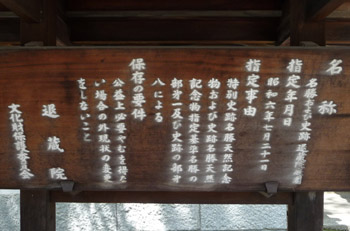 名称
名勝および史跡 退蔵院庭園
指定年月日
昭和六年七月二十一日
指定事由
特別史跡名勝天然記念
物および史跡名勝天然
記念物指定基準名勝の
部才一及び史跡の部才
八による
保存の要件
公益上必要やむを得な
い場合の外現状の変更
をしないこと
退蔵院
文化財保護委員会